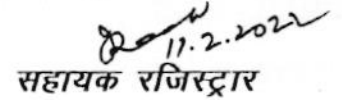 11.2.2022
सहायक रजिस्ट्रार